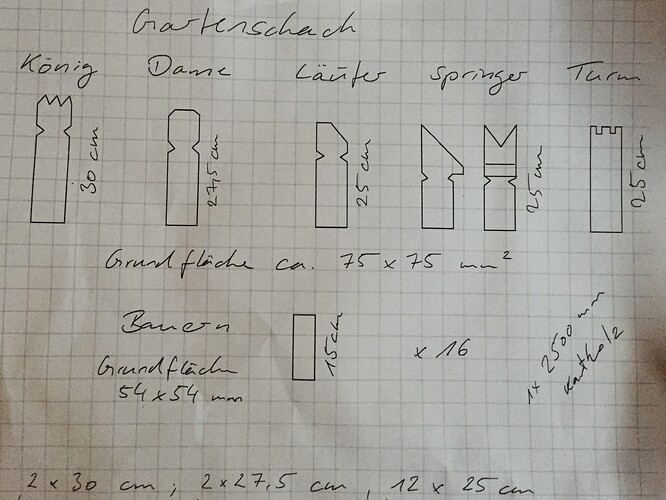 Gartenschach
König Dame Läufer Springer Turm
30 cm 27,5 cm 25 cm 25 cm 25 cm
Grundfläche ca. 75 x 75 mm²
Bauern 15 cm x 16
Grundfläche
54 x 54 mm
1x 2500 mm
Kantholz
2 x 30 cm ; 2 x 27,5 cm , 12 x 25 cm